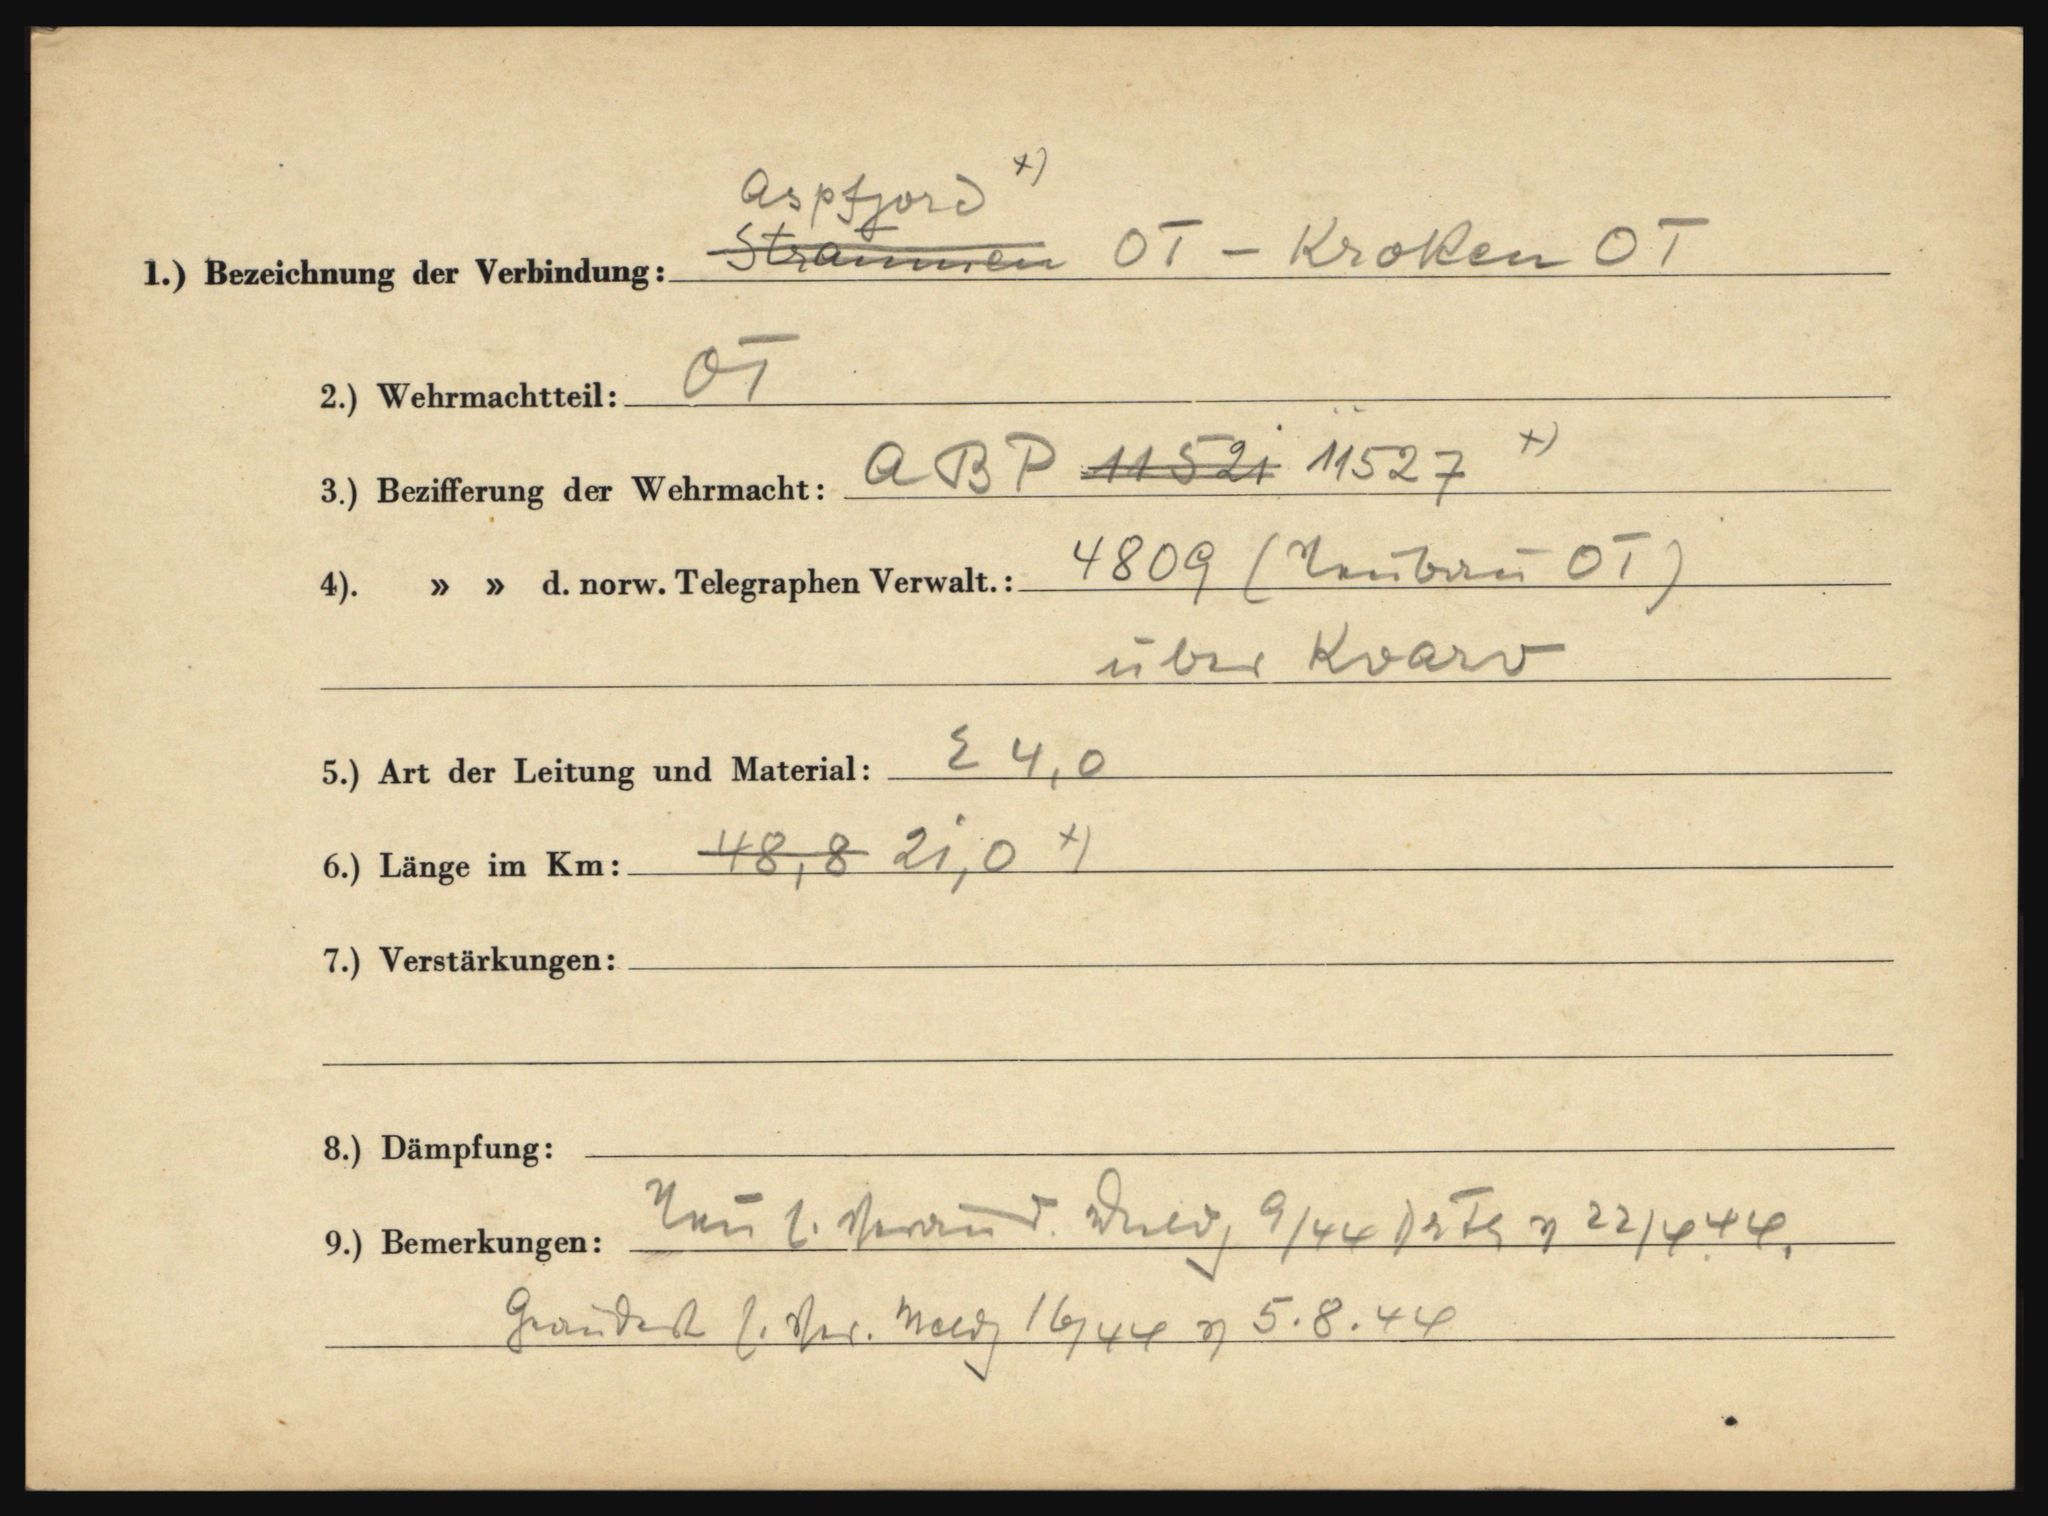 Aspfjord +)
1.) Bezeichnung der Verbindung: Straumen OT – Kroken OT
2.) Wehrmachtteil: OT
3.) Bezifferung der Wehrmacht: ABP 11521 11527 +)
4). » » d. norw. Telegraphen Verwalt.: 4809 (Neubau OT)
über Kvarv
5.) Art der Leitung und Material: E 4,0
6.) Länge im Km: 48,8 21,0 +)
7.) Verstärkungen:
8.) Dämpfung:
9.) Bemerkungen: Neu l. Veränd. Meldg 9/44 22/4 44.
Geändert l. Ver. Meldg 16/44 v 5.8.44